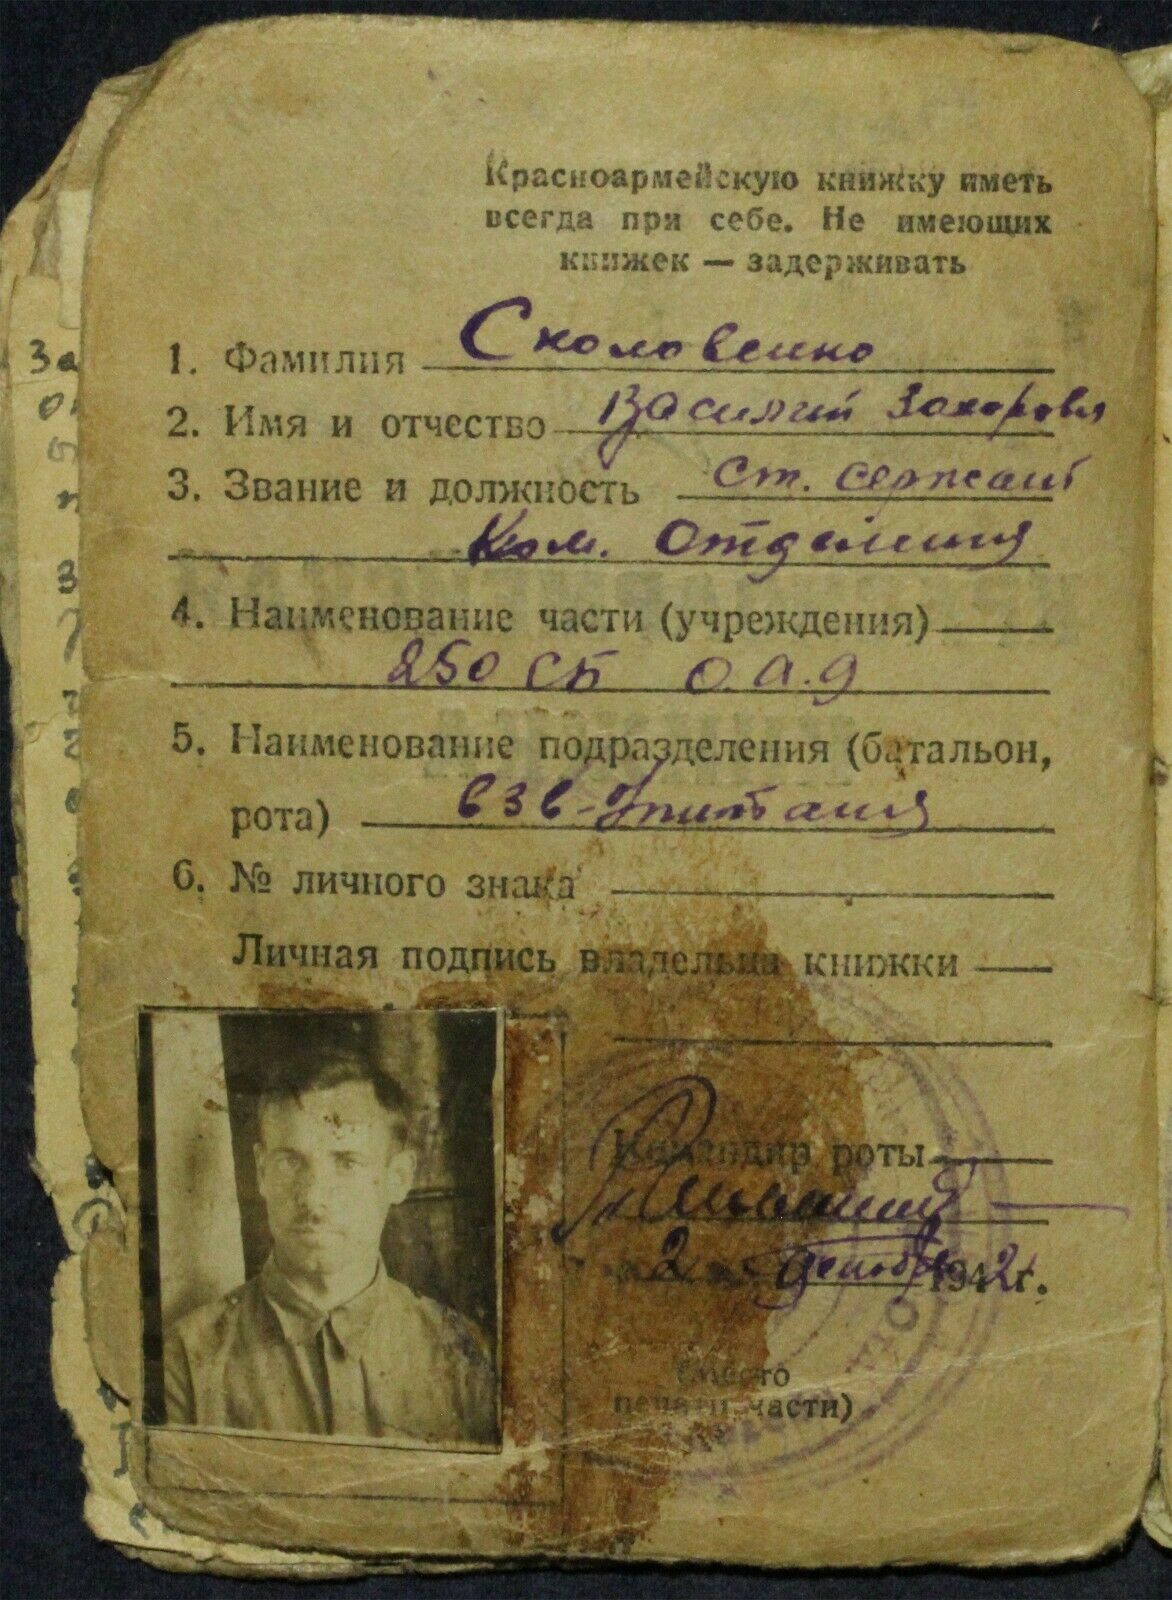 Красноармейскую книжку иметь
всегда при себе. Не имеющих
книжек — задерживать
1. Фамилия Сколовенко
2. Имя и отчество Василий Захоровч
3. Звание и должность ст. сержант
Ком. Отделения
4. Наименование части (учреждения)
250 СБ О.А.д
5. Наименование подразделения (батальон,
рота) взв-питания
6. № личного знака
Личная подпись владельца книжки
Командир роты
2 декабр 1942г.
(место
печати части)
За